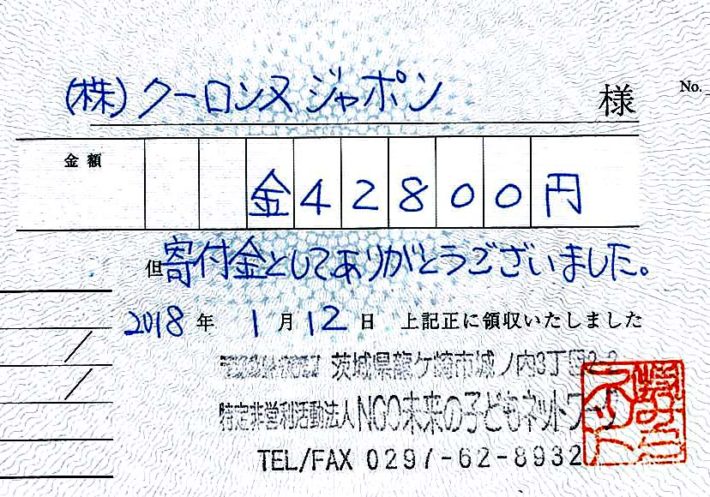 (株)クーロンヌジャポン 様 No.
金額 金42800円
但 寄付金としてありがとうございました。
2018年1月12日 上記正に領収いたしました
茨城県龍ケ崎市城ノ内3丁目2-2
特定非営利活動法人NGO未来の子どもネットワーク
TEL/FAX 0297-62-8932